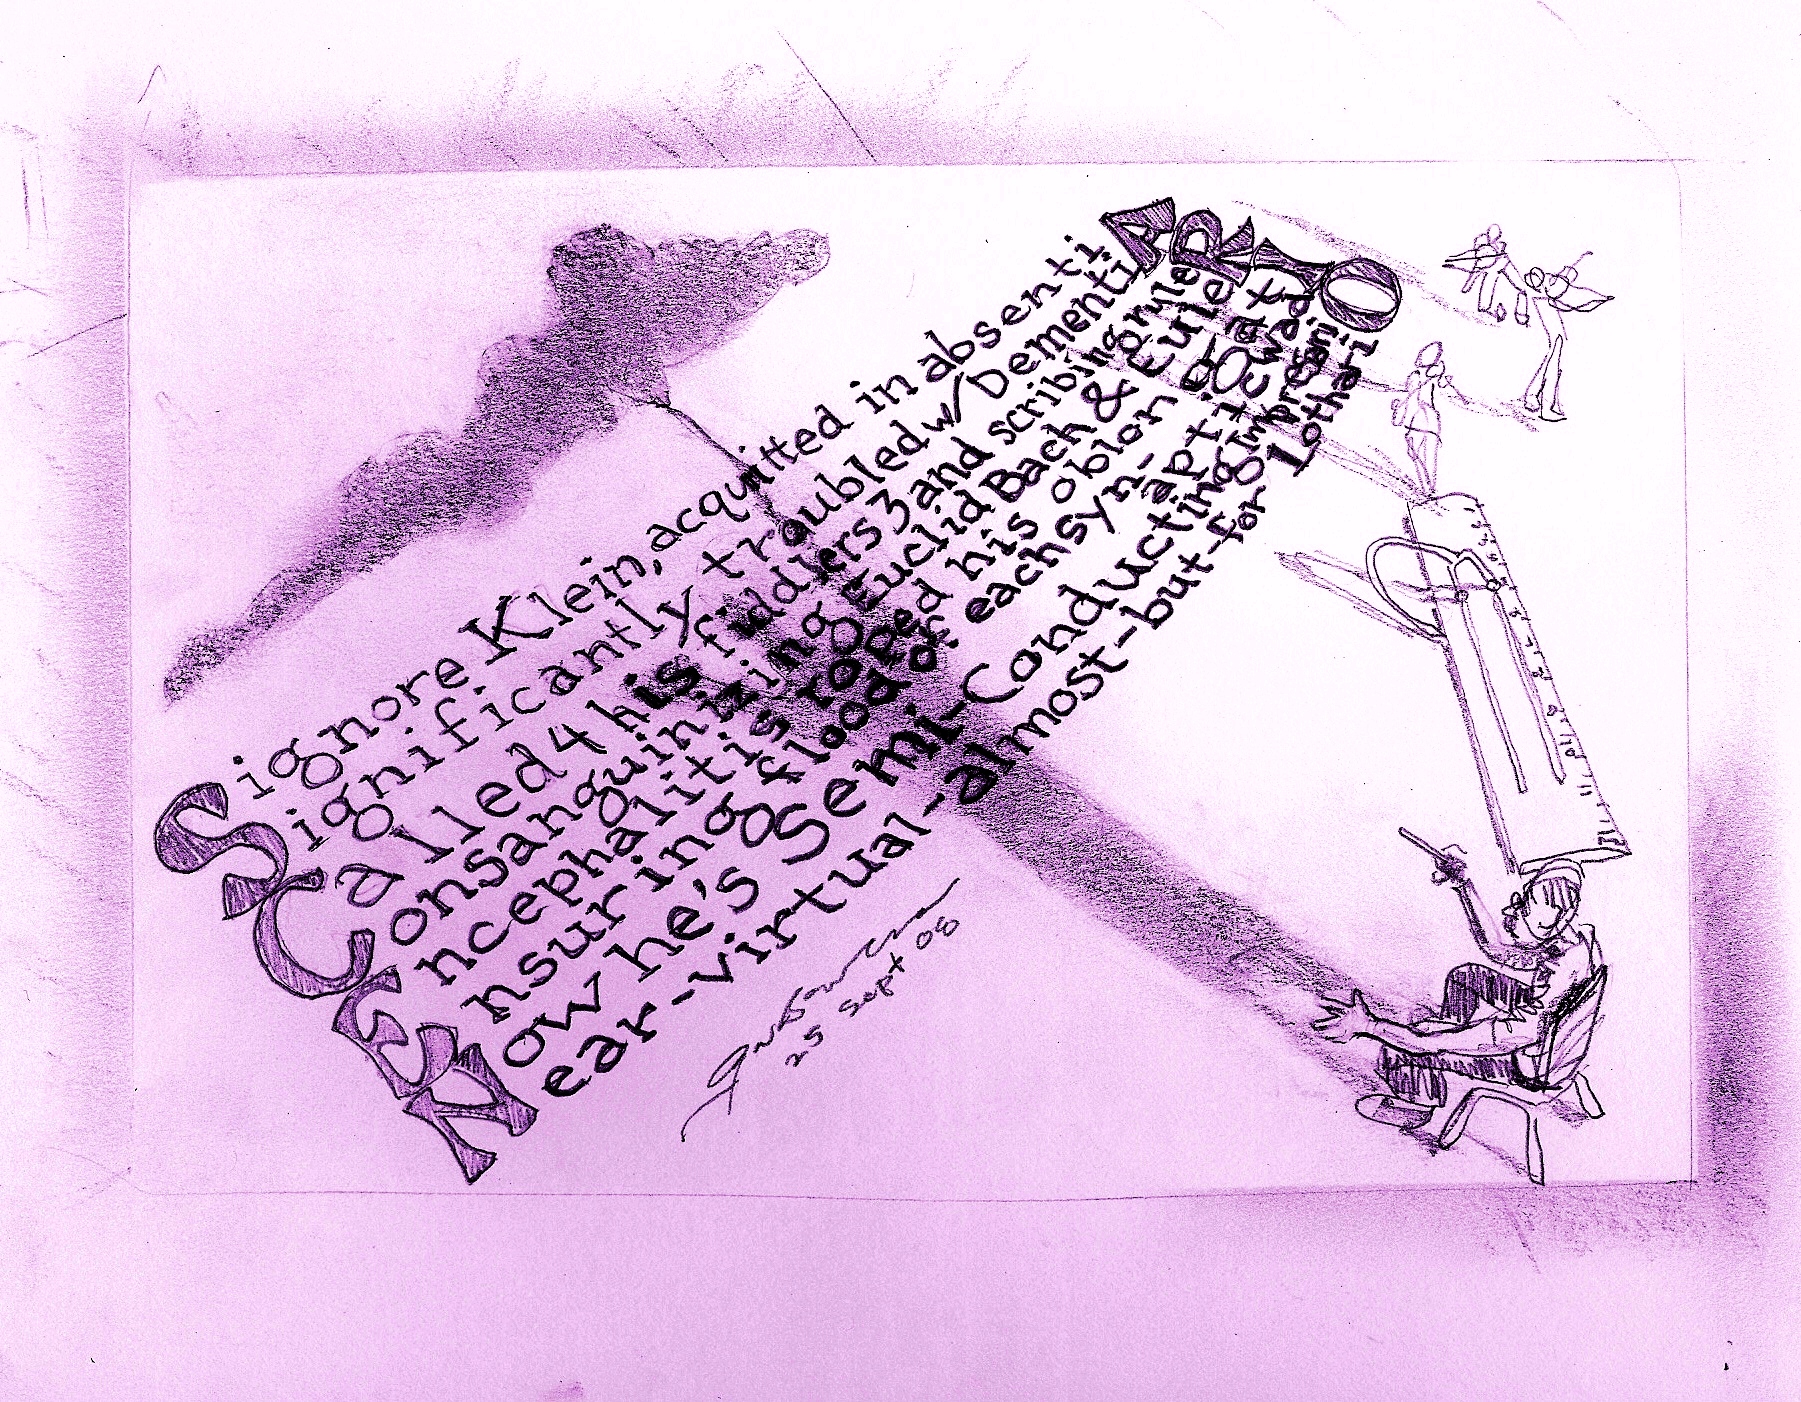 Signore Klein, acquitted in absentiA
Significantly troubled w/DementiA
Called 4 his fiddlers 3 and scribing ruleR
Consanguinizing Euclid Bach & EuleR
Encephalitis roped his oblongatI
Ensuring flood of each syn-aptic wadI
Now he's Semi-Conducting ImpresariO
Near-virtual-almost-but-for LothariO
25 Sept 08